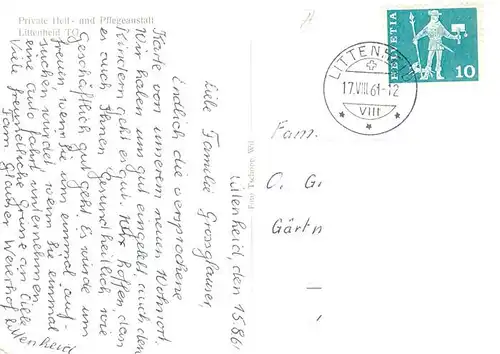 Private Heil- und Pflegeanstalt
Littenheid TG
Littenheid, den 15.8.61
Liebe Familie Grossglauser,
Endlich die versprochene
Karte von unserem neuen Wohnort.
Wir haben uns gut eingelebt, auch den
Kindern geht es gut. Wir hoffen, dass
es auch Ihnen Gesundheitlich wie
Geschäftlich gut geht. Es würde uns
freuen wenn Sie uns einmal auf-
suchen würdet, wenn Sie einmal
eine Autofahrt unternehmen.
Viele freundliche Grüsse an Alle
Fam. Glauser Weierhof
Littenheid
Foto Tschopp, Wil
LITTENHEID
17.VIII.61-12
VIII
HELVETIA
10
Fam.
O. G
Gärtn